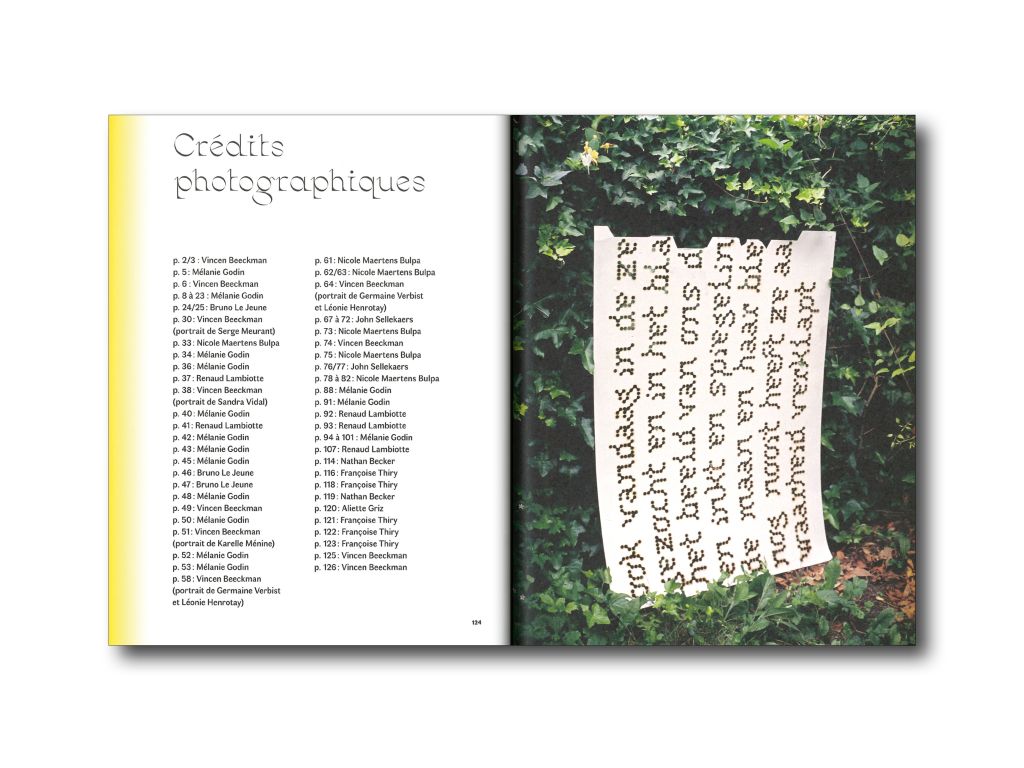 Crédits
photographiques
p. 2/3 : Vincen Beeckman
p. 5 : Mélanie Godin
p. 6 : Vincen Beeckman
p. 8 à 23 : Mélanie Godin
p. 24/25 : Bruno Le Jeune
p. 30 : Vincen Beeckman
(portrait de Serge Meurant)
p. 33 : Nicole Maertens Bulpa
p. 34 : Mélanie Godin
p. 36 : Mélanie Godin
p. 37 : Renaud Lambiotte
p. 38 : Vincen Beeckman
(portrait de Sandra Vidal)
p. 40 : Mélanie Godin
p. 41 : Renaud Lambiotte
p. 42 : Mélanie Godin
p. 43 : Mélanie Godin
p. 45 : Mélanie Godin
p. 46 : Bruno Le Jeune
p. 47 : Bruno Le Jeune
p. 48 : Mélanie Godin
p. 49 : Vincen Beeckman
p. 50 : Mélanie Godin
p. 51 : Vincen Beeckman
(portrait de Karelle Ménine)
p. 52 : Mélanie Godin
p. 53 : Mélanie Godin
p. 58 : Vincen Beeckman
(portrait de Germaine Verbist
et Léonie Henrotay)
p. 61 : Nicole Maertens Bulpa
p. 62/63 : Nicole Maertens Bulpa
p. 64 : Vincen Beeckman
(portrait de Germaine Verbist
et Léonie Henrotay)
p. 67 à 72 : John Sellekaers
p. 73 : Nicole Maertens Bulpa
p. 74 : Vincen Beeckman
p. 75 : Nicole Maertens Bulpa
p. 76/77 : John Sellekaers
p. 78 à 82 : Nicole Maertens Bulpa
p. 88 : Mélanie Godin
p. 91 : Mélanie Godin
p. 92 : Renaud Lambiotte
p. 93 : Renaud Lambiotte
p. 94 à 101 : Mélanie Godin
p. 107 : Renaud Lambiotte
p. 114 : Nathan Becker
p. 116 : Françoise Thiry
p. 118 : Françoise Thiry
p. 119 : Nathan Becker
p. 120 : Aliette Griz
p. 121 : Françoise Thiry
p. 122 : Françoise Thiry
p. 123 : Françoise Thiry
p. 125 : Vincen Beeckman
p. 126 : Vincen Beeckman
124
ook vandaag in de ze
ezocht en in het bra
het beeld van ons
de maan en haar
nog nooit
waarheid